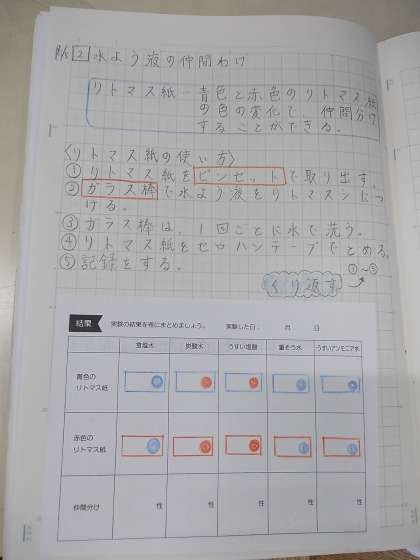 2 水よう液の仲間わけ
リトマス紙…青色と赤色のリトマス紙
の色の変化で、仲間分け
することができる。
〈リトマス紙の使い方〉
①リトマス紙をピンセットで取り出す。
②ガラス棒で水よう液をリトマスシにつ
ける。
③ガラス棒は、1回ごとに水で洗う。
④リトマス紙をセロハンテープでとめる。
⑤記録をする。
①〜⑤
くり返す
結果 実験の結果を表にまとめましょう。 実験した日: 月 日
食塩水 炭酸水 うすい塩酸 重そう水 うすいアンモニア水
青色の
リトマス紙
赤色の
リトマス紙
仲間分け 性 性 性 性 性